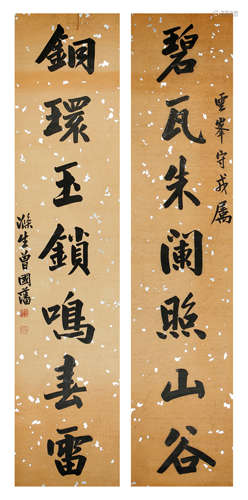 碧瓦朱闌照山谷
雲峯守戎屬
銅環玉鎖鳴春雷
滌生曾國藩